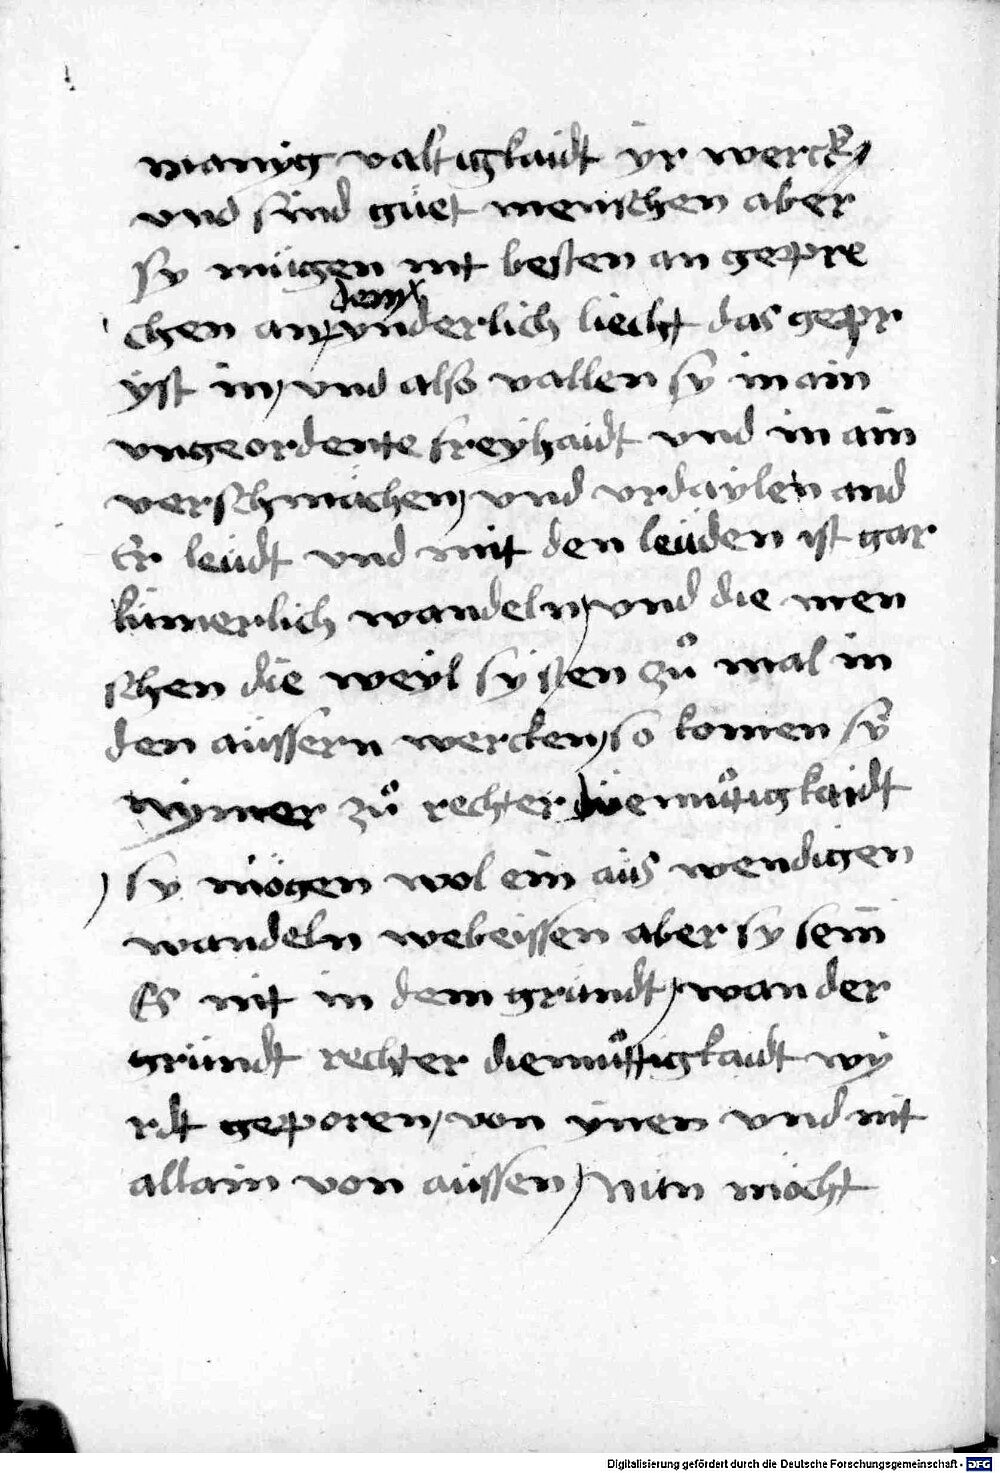 manig valtigkaidt yr werck,
vnd sind güet menschen aber
sy mügen nit besten an geppre
chen an, dem
vnderlich liecht das geppr
yst in, vnd also vallen sy in ain
vngeordente freyhaidt vnd in ain
verschmächen, vnd vrdaylen and
Er leüdt vnd mit den leüden ist gar
kümerlich wandeln, vnd die men
schen die weyl sy sten zů mal in
den aüssern wercken, so komen sy
nymer zů rechter diemůtigkaidt
sy mögen wol ein aüs wendigen
wandeln webeissen aber sy sein
Es nit in dem gründt, wan der
gründt rechter diemůttigkaidt wy
rdt gepporen, von ynen vnd nit
allain von aüssen, Nun möcht
Digitalisierung gefördert durch die Deutsche Forschungsgemeinschaft - DFG